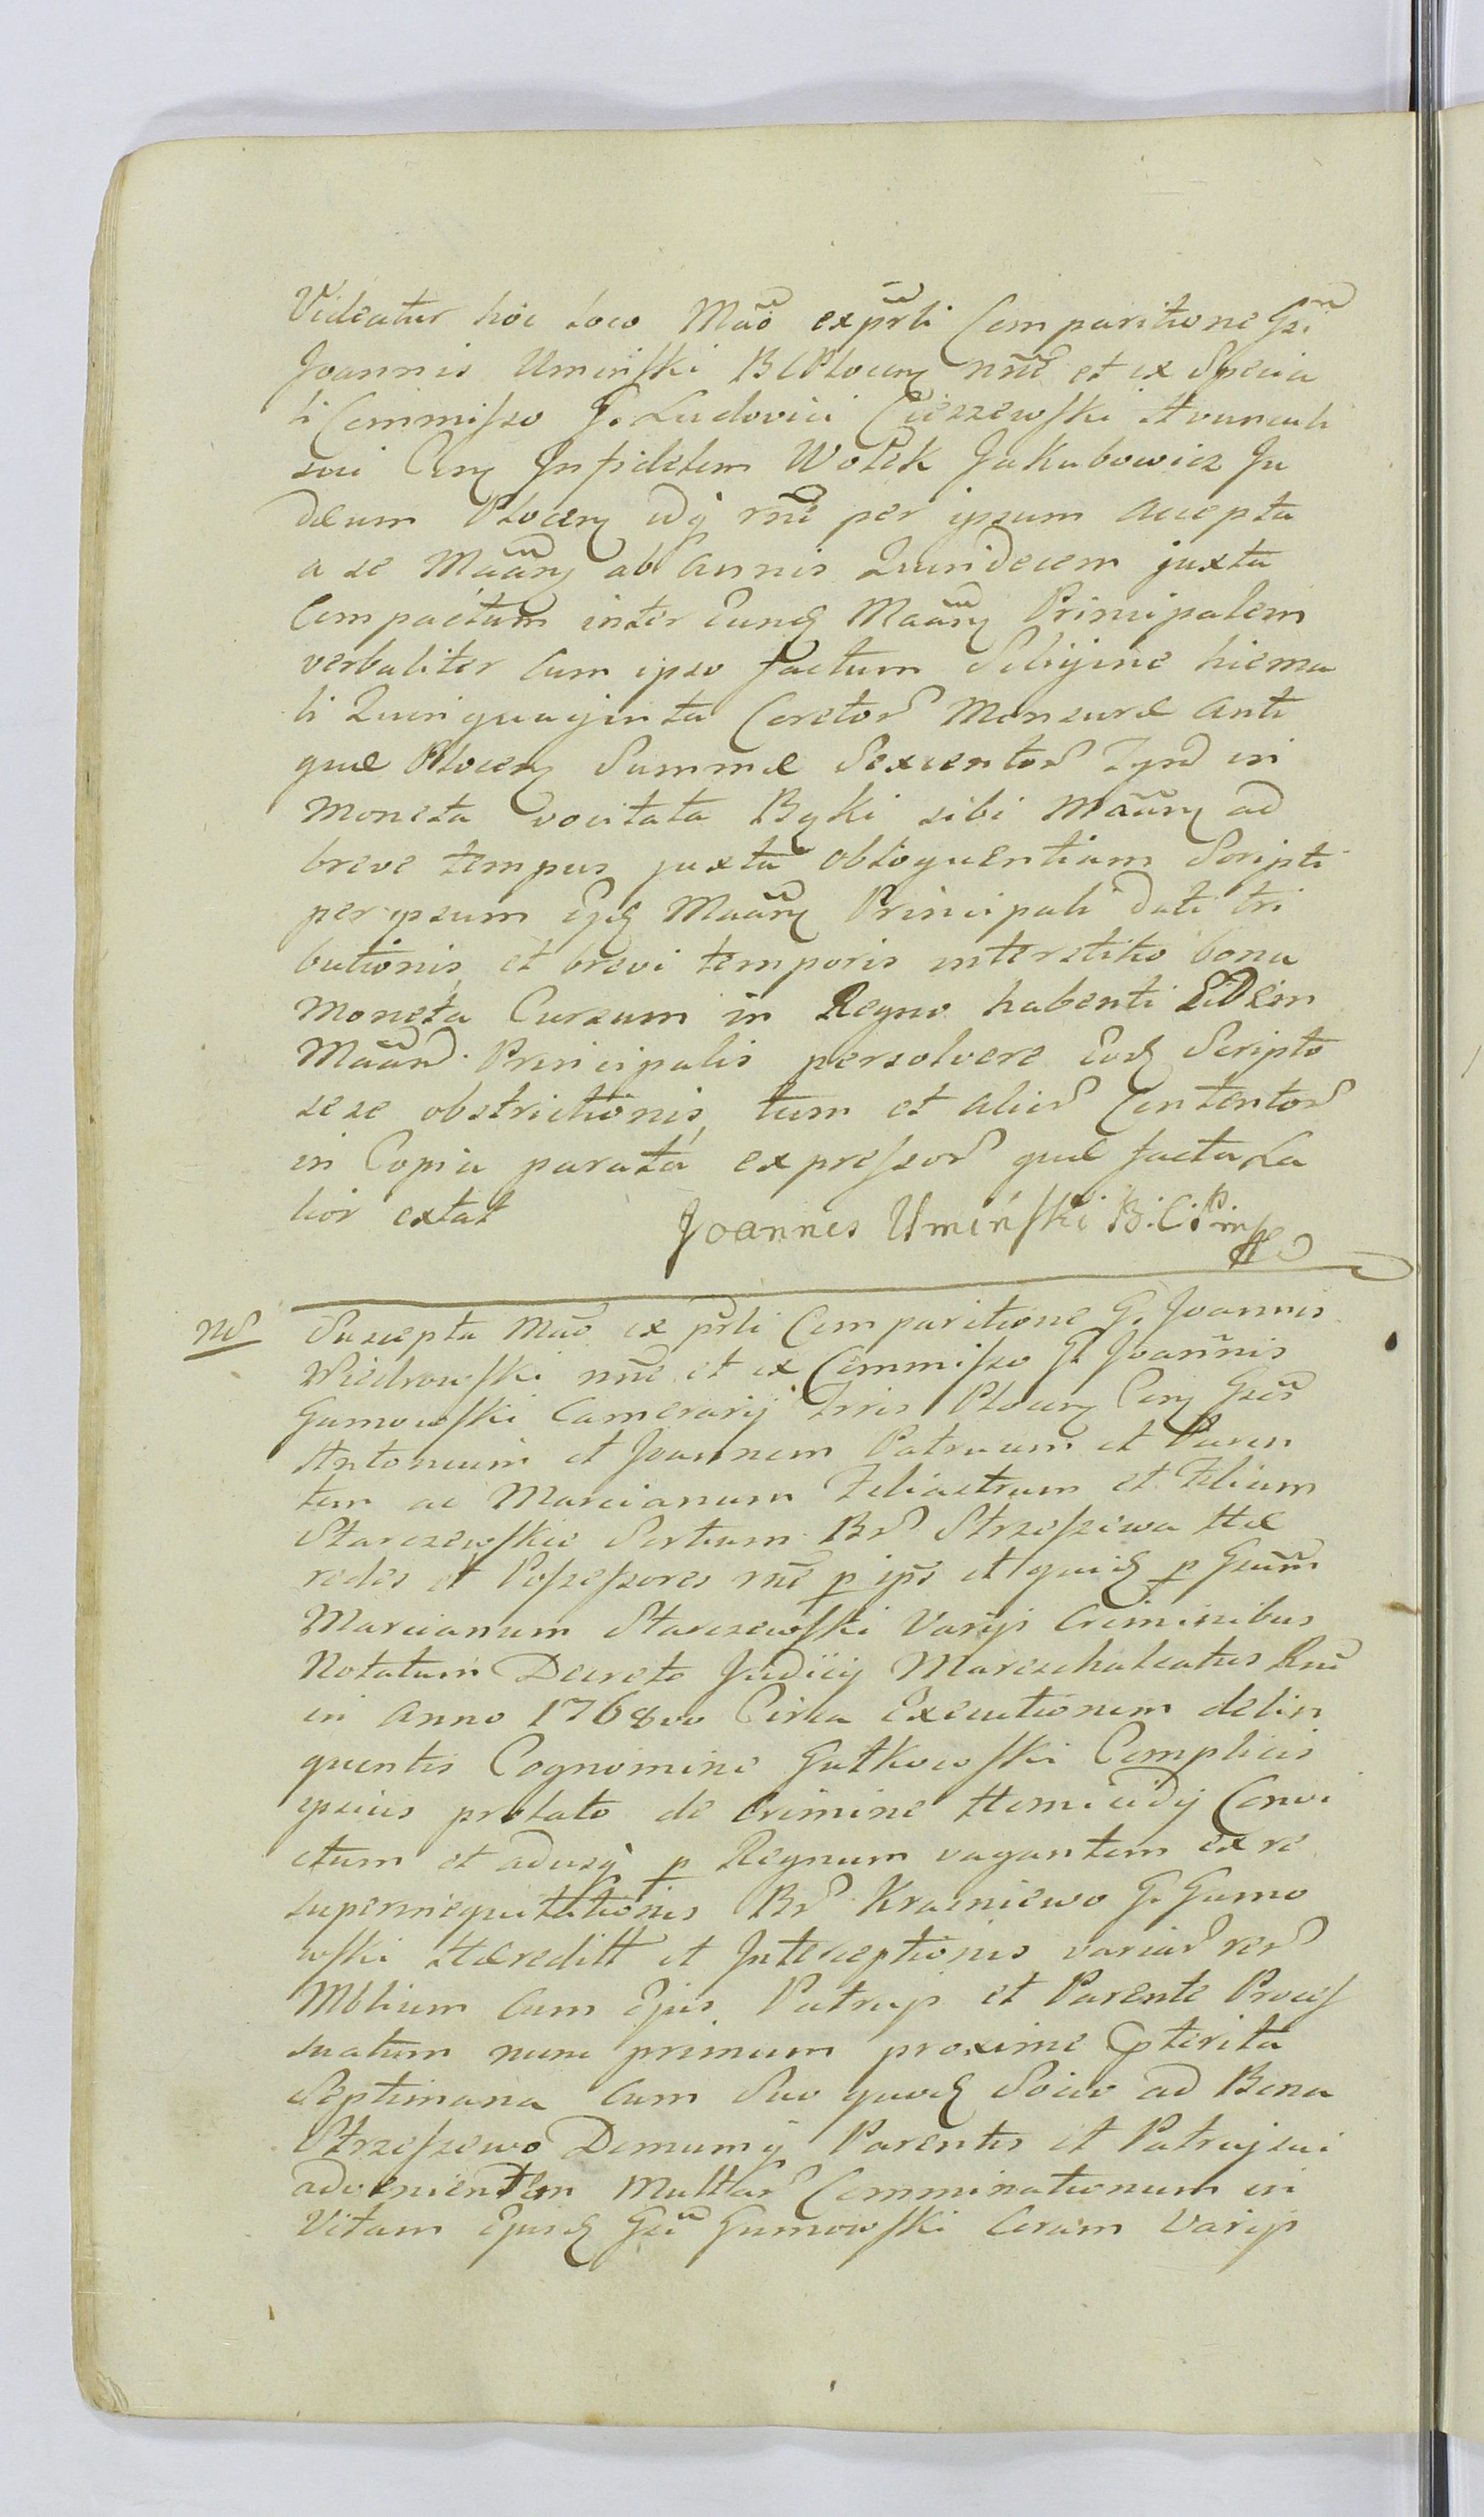 Videatur hoc loco Mãō ex pr̃li Comparitione Gsi
Joannis Umiński BCPlocen nñe et ex Specia
li Commisso G. Ludovici Cieszewski Avunculi
sui Con Infidelem Wolek Jakubowicz Ju
dæum Plocen idq rñe per ipsum accepta
a se Maãn ab annis Quindecem juxta
Compactum inter eund Maãn Principalem
verbaliter cum ipso factum Siligine hiema
li Quinquaginta Coretor Mensuræ anti
quæ Plocen Summæ Sexcentor Tyn in
Moneta vocitata Bąki sibi Maãn ad
breve tempus juxta obloquentiam Scripti
per ipsum ejd Maãn Principali dati tri
butionis, et brevi temporis interstitio bona
Moneta Cursum in Regno habenti Eidem
Maãn Principalis persolvere eod Scripto
sese obstrictionis, tum et alior Contentor
in Copia parata expressor quæ facta La
tior extat
Joannes Umiński B.C.P. mp
Nδ Suscepta Mãō ex pr̃li Comparitione G. Joannis
Wiedrowski nñe et ex Commisso G. Joannis
Gumowski Camerarij Trris Plocen Con Gsos
Antonium et Joannem Patruum et Paren
tem ac Marcianum Filiastrum et Filium
Starczewskie Sortium Br Strzeszewa Hæ
redes et Possessores rñe p ip̃s et quid p Gsum
Marcianum Starczewski Varijs Criminibus
Notatum Decreto Judicij Mareschalcatus Rni
in Anno 1768vo Circa Executionem delin
quentis Cognomine Gutkowski Complicis
ipsius prolato de Crimine Homicidij Convi
ctum et adusq p Regnum vagantem ex re
superinequitationis Br Krasniewo G. Gumo
wski Hæreditt et Interceptionis variar rer
Mblium cum Ejus Patruo et Parente Proces
suatum nunc primum proxime pterita
Septimana cum Suo quod Socio ad Bona
Strzeszewo Domumq Parentis et Patruj sui
advenientem Multar Comminationum in
Vitam Ejusd Gsi Gumowski Coram Varijs